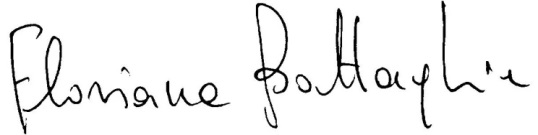 Floriana Battaglia